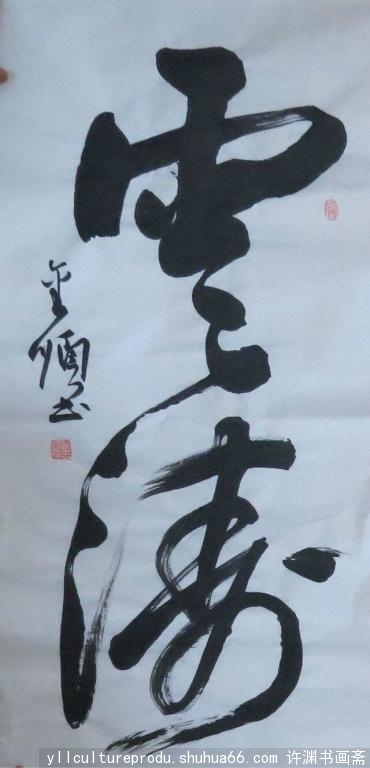 雲涛
金 书
yllcultureprodu.shuhua66.com 许渊书画斋